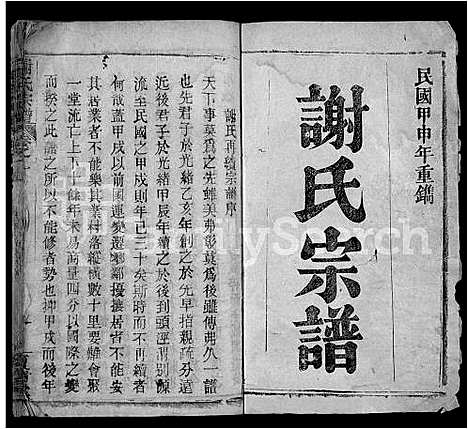 民國甲申年重鐫
謝氏宗譜
謝氏再續宗譜序
天下事莫爲之先雖美弗彰莫爲後雖傳弗久一譜
也先君子於光緒乙亥年創之於先早拾親疏分遠
近後君子於光緒甲辰年續之於後到頭逕渭别源
流至民國之甲戌則年已三十矣斯時而不再續者
何哉蓋甲戌以前國運變遷鄰擾攘居者不能安
其居業者不能樂其業村落縱橫數十里要難會聚
一堂流亡上下十餘年未易商量四分以國際之變
而族之此譜之所以不能修者勢也抑甲戌而後年
FamilySearch